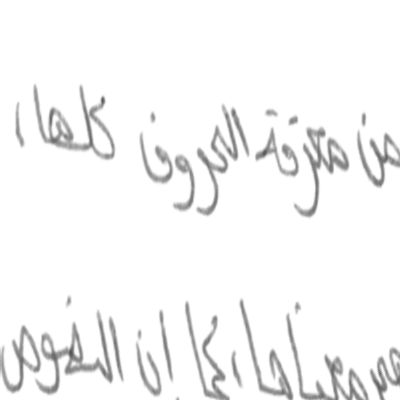 من معرفة الحروف كلها،
معناها، كما ان النصوص